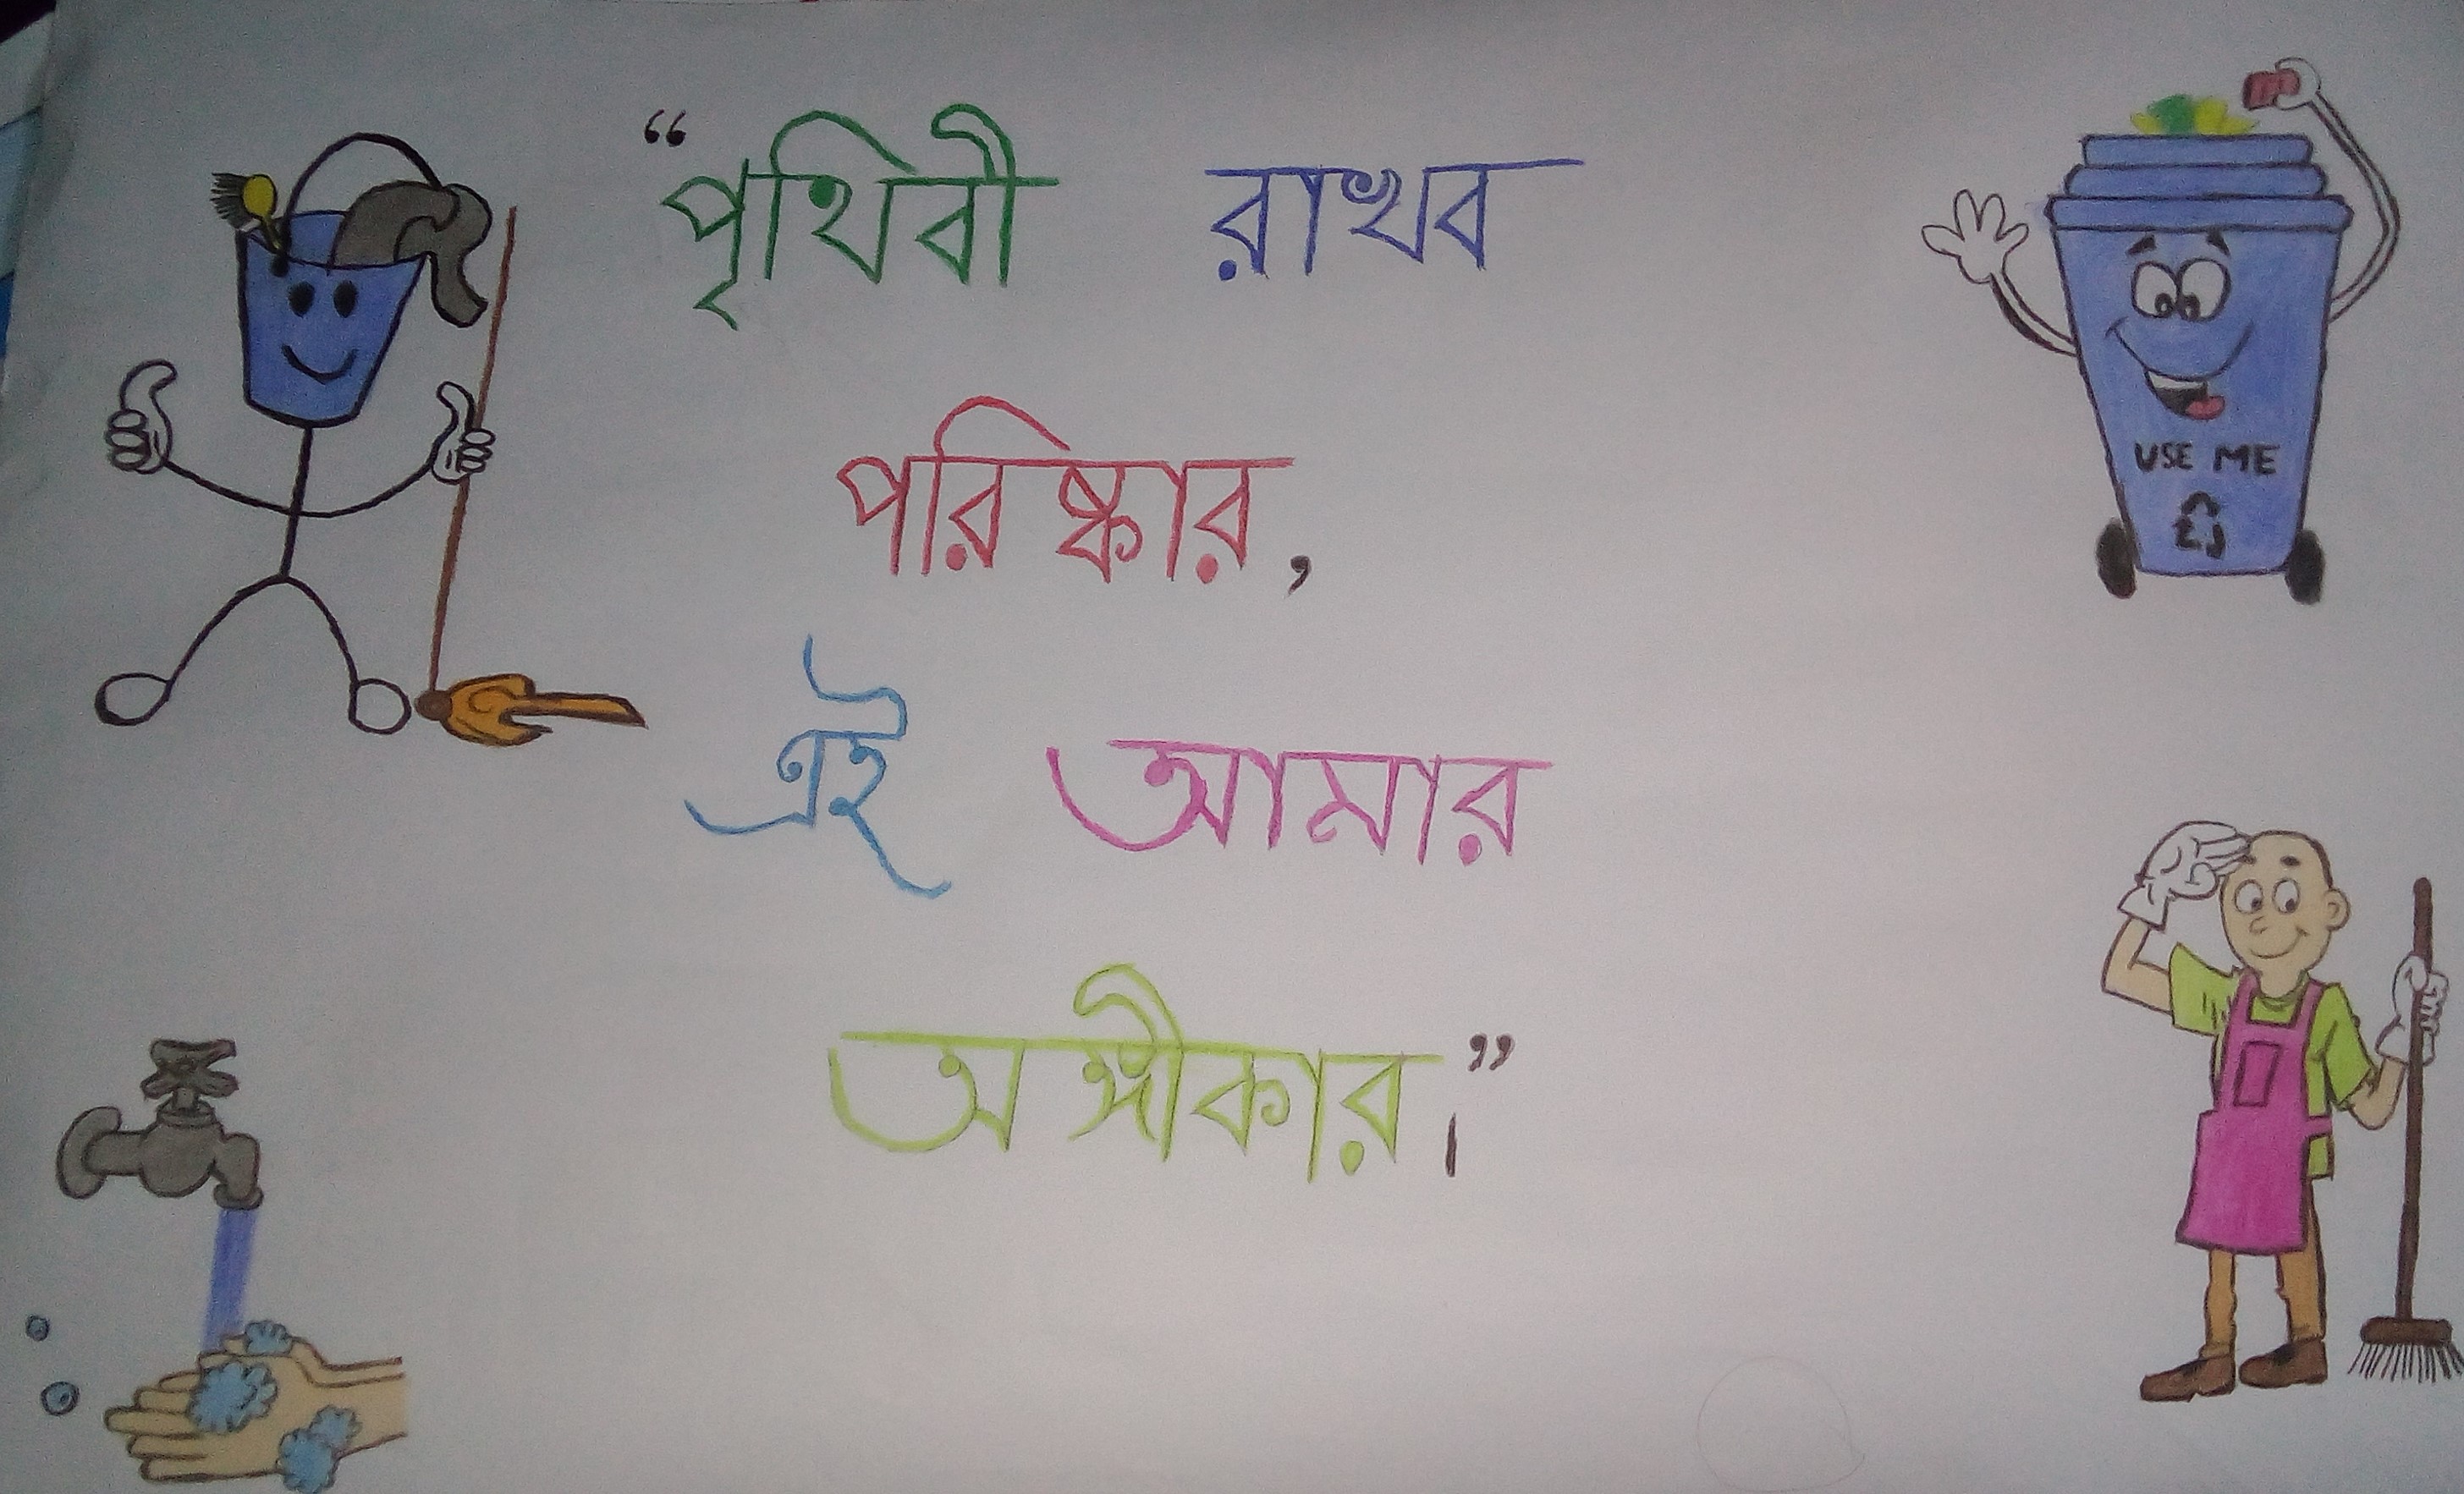 “পৃথিবী রাখব
পরিষ্কার,
এই আমার
অঙ্গীকার।”
USE ME